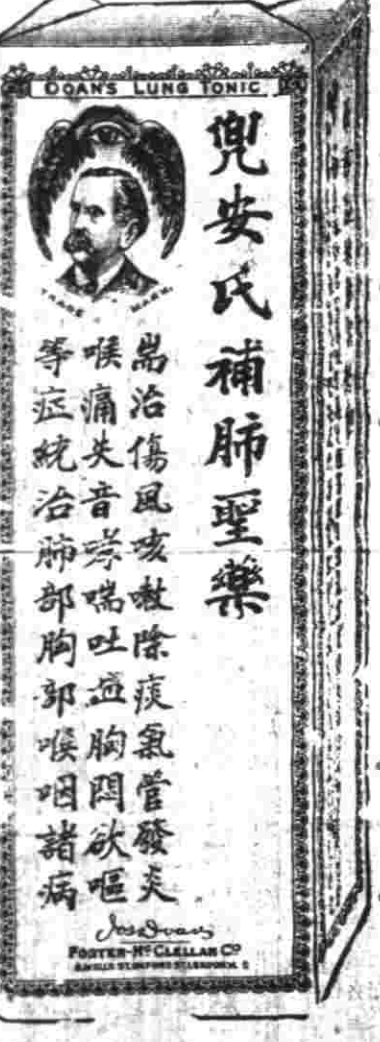 DOAN'S LUNG TONIC
TRADE MARK
兜安氏補肺聖藥
耑治傷風咳嗽除痰氣管發炎
喉痛失音哮喘吐血胸悶欲嘔
等症統治肺部胸部喉咽諸病
Jas Doan
FOSTER-McCLELLAN Co